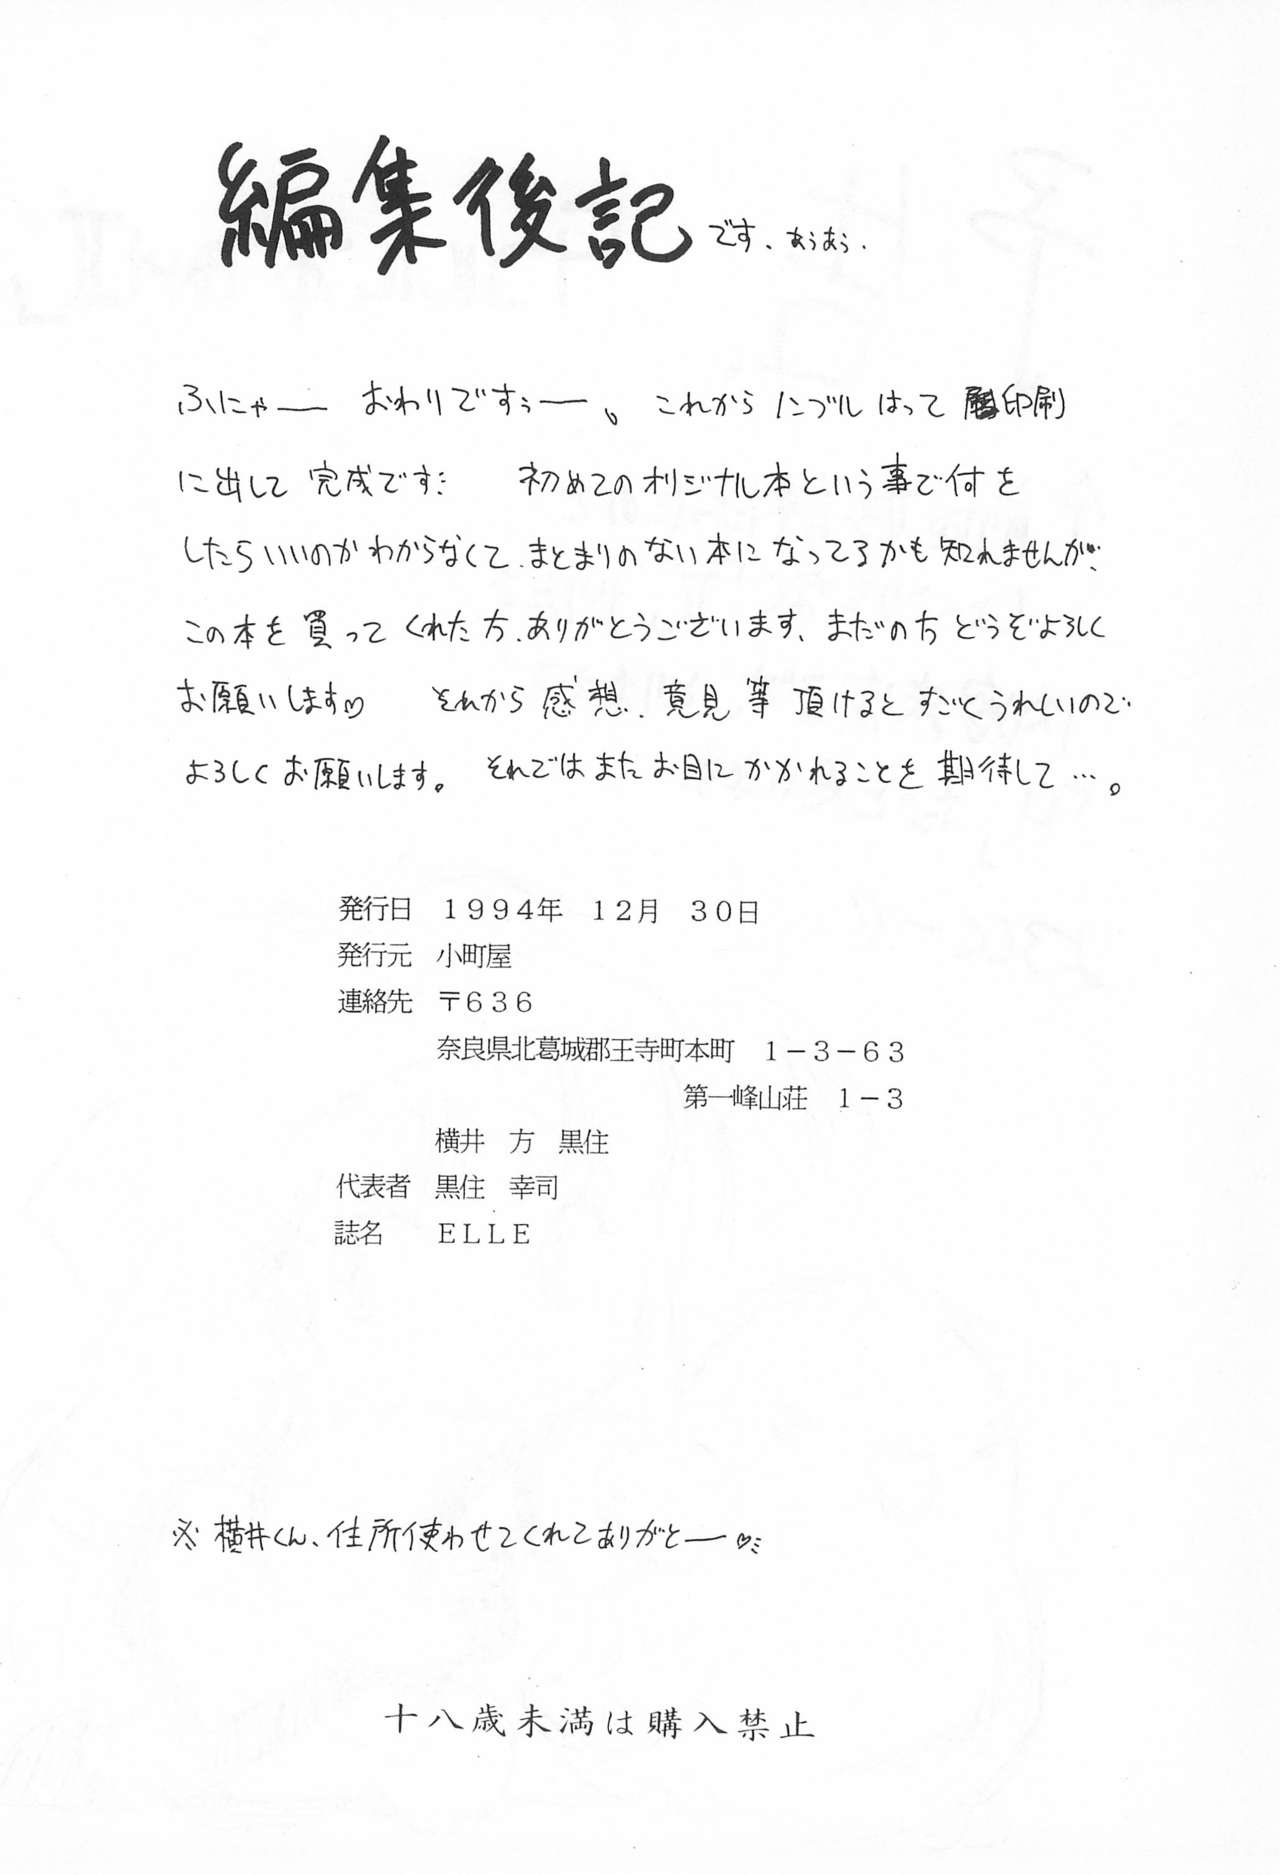 編集後記です、あぅあぅ.
ふにゃー おわりですぅー。 これからノンブルはって 印刷
に出して 完成です 初めてのオリジナル本という事で何を
したらいいのかわからなくて、まとまりのない本になってるかも知れませんが、
この本を買ってくれた方、ありがとうございます、まだの方どうぞよろしく
お願いします♡ それから感想、意見等頂けるとすごくうれしいので
よろしくお願いします。 それではまたお目にかかれることを期待して…。
発行日 1994年 12月 30日
発行元 小町屋
連絡先 〒636
奈良県北葛城郡王寺町本町 1-3-63
第一峰山荘 1-3
横井 方 黒住
代表者 黒住 幸司
誌名 ELLE
※横井くん、住所使わせてくれてありがとー♡
十八歳未満は購入禁止